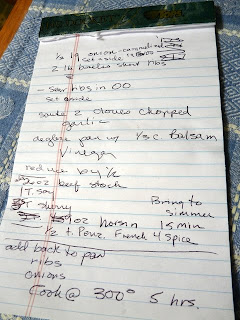 1/2 lg onion - caramelized
set aside
2 lb boneless short ribs
- Sear ribs in OO
set aside
saute 2 cloves chopped
garlic
deglaze pan w/ 1/3 c Balsam
Vinegar
reduce by 1/2
oz beef stock
1 T. soy
1 T sherry
Bring to
simmer
oz hoisin
15 min
1/2 t. Penz. French 4 Spice
add back to pan
ribs
onions
Cook @ 300° 5 hrs.